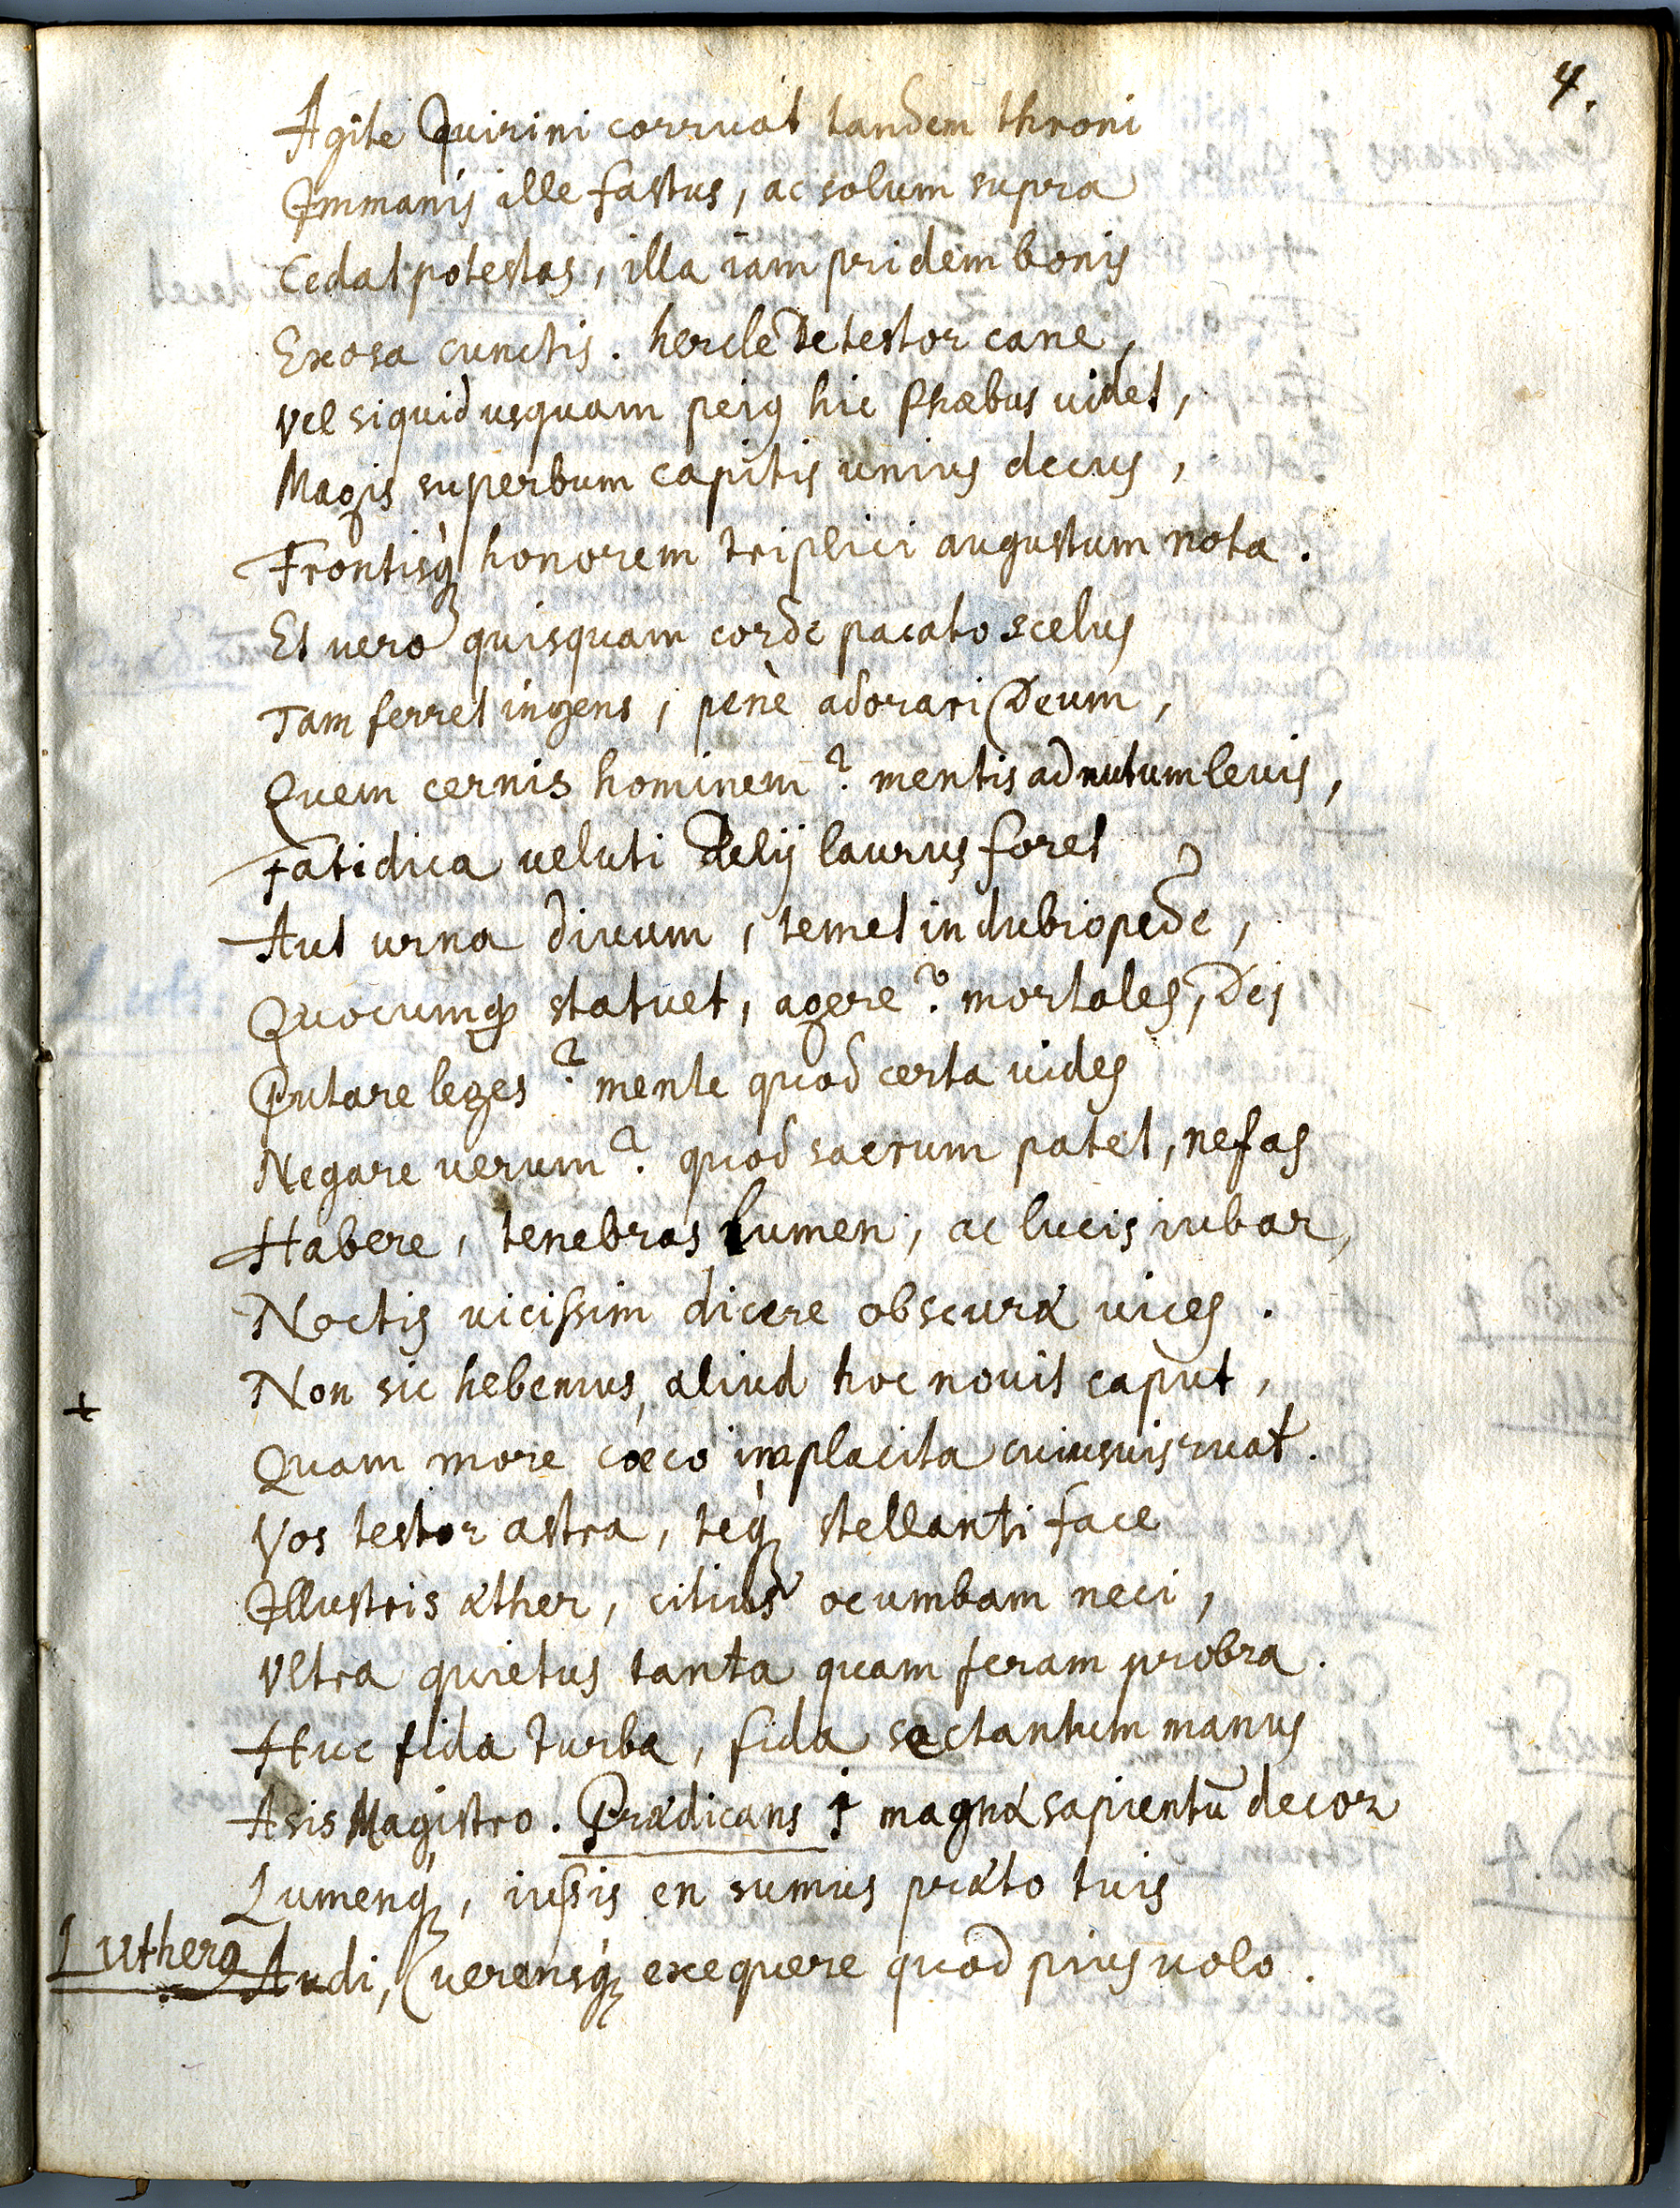 4.
Agite Quirini corruat tandem throni
Immanis ille fastus, ac solum supra
Cedat potestas, illa iam pridem bonis
Exosa cunctis. hercle detestor cane,
Vel siquid usquam peiꝰ hic Phœbus uidet,
Magis superbum capitis unius decus,
Frontisq́ꝫ honorem triplici augustum nota.
Et uero quisquam corde pacato scelus
Tam ferret ingens, penè adorari Deum,
Quem cernis hominem? mentis ad nutum leuis,
Fatidica ueluti Delij laurus foret
Aut urna diuum, temet in dubio pede,
Quocumqꝫ statuet, agere? mortales, Dei
Putare leges? mente quod certa uides
Negare uerum? quod sacrum patet, nefas
Habere, tenebras lumen, ac lucis iubar,
Noctis uicissim dicere obscuræ uices.
+ Non sic hebemus, aliud hoc nouit caput,
Quam more cœco in placita cuiusuis ruat.
Vos testor astra, teq́ꝫ stellanti face
Illustris æther, citius ocumbam neci,
Vltra quietus tanta quam feram probra.
Huc fida turba, fida sectantum manus
Asis Magistro. Prædicans 1 magnæ sapientũ decor
Lumenq́ꝫ, iussis en sumus præto tuis
Lutherꝰ Audi, uerensq́ꝫ exequere quod pius uolo.